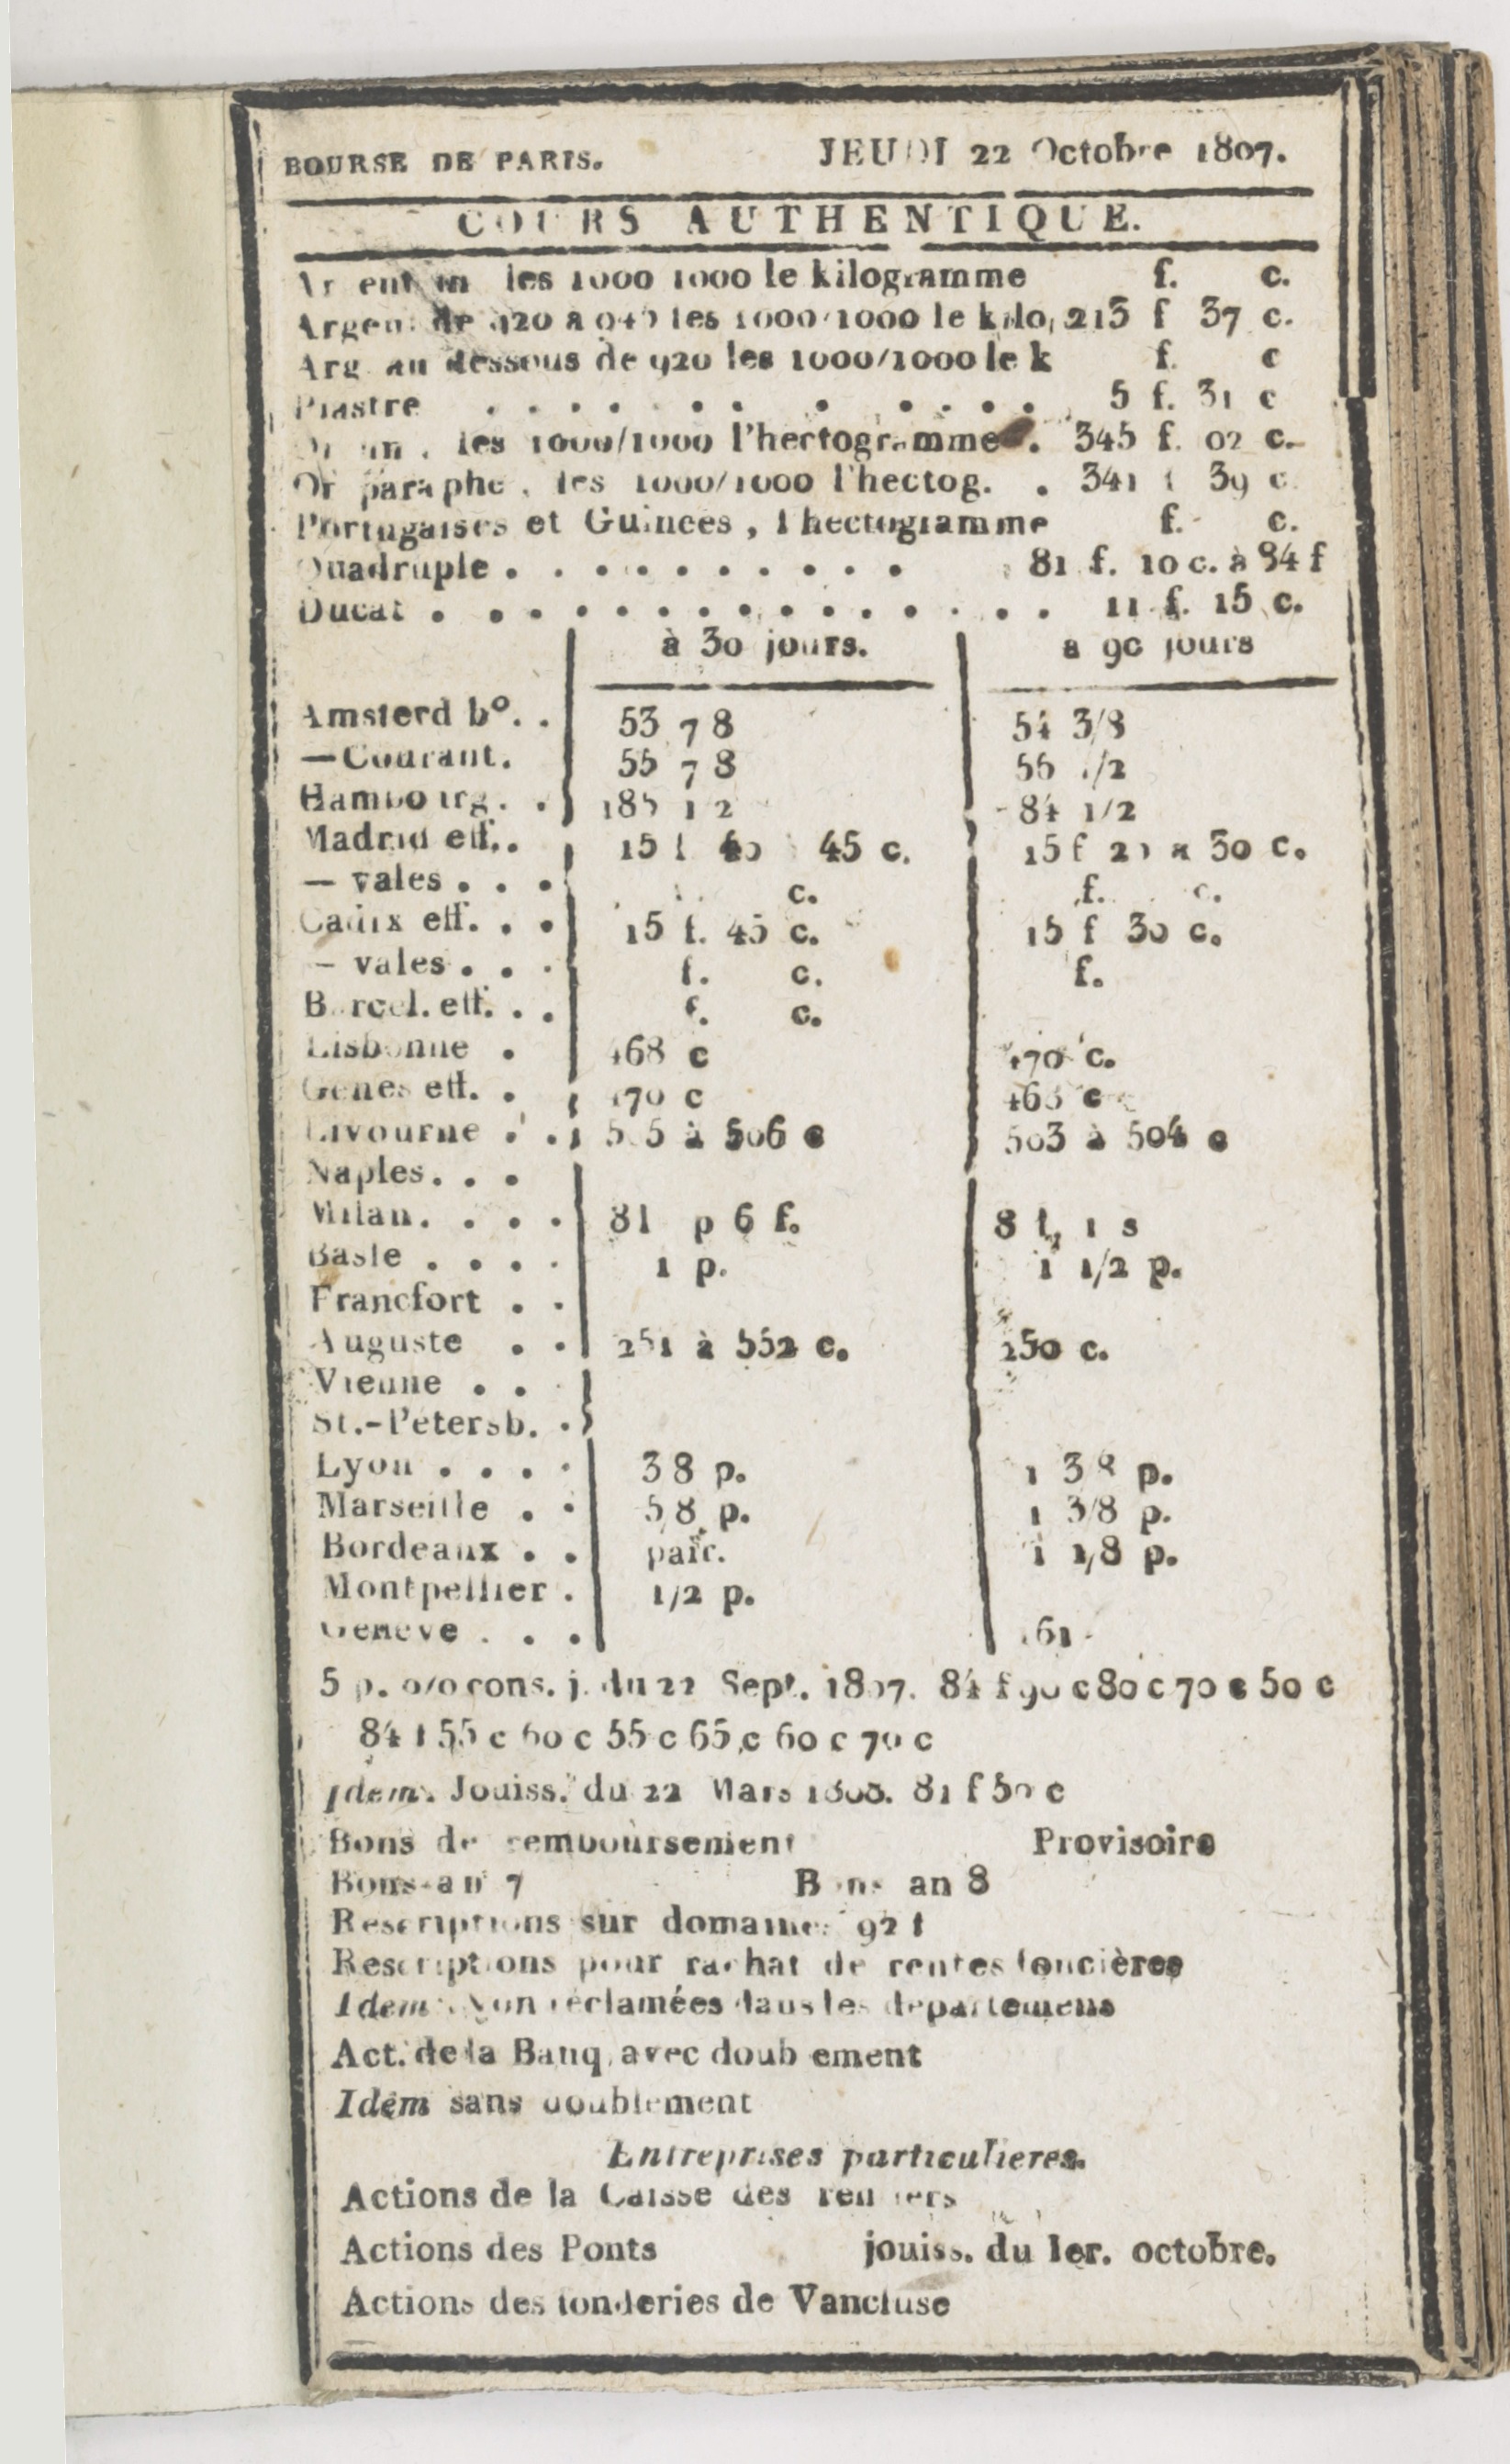 BOURSE DE PARIS. JEUDI 22 Octobre 1807.
COURS AUTHENTIQUE.
les 1000 1000 le kilogramme f. c.
Argent de 920 a 945 les 1000/1000 le kilo, 213 f 37 c.
Arg au dessous de 920 les 1000/1000 le k f. c
Piastre . . . . . . . . . . . . 5 f. 31 c
les 1000/1000 l'hectogramme . 345 f. 02 c.
Or paraphe, les 1000/1000 l'hectog. . 341 f 39 c
Portugaises et Guinees, l hectogramme f. c.
Quadruple . . . . . . . . . . 81 f. 10 c. à 84 f
Ducat . . . . . . . . . . . . . . 11 f. 15 c.
à 30 jours. a 90 jours
Amsterd bº. . 53 7 8 54 3/8
—Courant. 55 7 8 56 1/2
Hambourg. . 185 1 2 84 1/2
Madrid eff.. 15 f 40 45 c. 15 f 20 a 30 c.
— vales . . . c. f. c.
Cadix eff. . . 15 f. 45 c. 15 f 30 c.
— vales . . . f. c. f.
Barcel. eff. . . f. c.
Lisbonne . 468 c 470 c.
Genes eff. . 470 c 468 c
Livourne . . 505 à 506 c 503 à 504 c
Naples. . .
Milan. . . . 8 l p 6 f. 8 l, 1 s
Basle . . . . 1 p. 1 1/2 p.
Francfort . .
Auguste . . 251 à 552 c. 250 c.
Vienne . .
St.-Pétersb. .
Lyon . . . . 3 8 p. 1 3 8 p.
Marseille . . 5/8 p. 1 3/8 p.
Bordeaux . . pair. 1 1/8 p.
Montpellier . 1/2 p.
Geneve . . . 161
5 p. 0/0 cons. j. du 22 Sept. 1807. 84 f 90 c 80 c 70 c 50 c
84 f 55 c 60 c 55 c 65 c 60 c 70 c
Idem. Jouiss. du 22 Mars 1808. 81 f 50 c
Bons de remboursement Provisoire
Bons an 7 Bons an 8
Rescriptions sur domaines 92 f
Rescriptions pour rachat de rentes foncières
Idem. Non réclamées dans les departemens
Act. de la Banq, avec doub ement
Idem sans doublement
Entreprises particulieres.
Actions de la Caisse des rentiers
Actions des Ponts jouiss. du 1er. octobre.
Actions des fonderies de Vaucluse